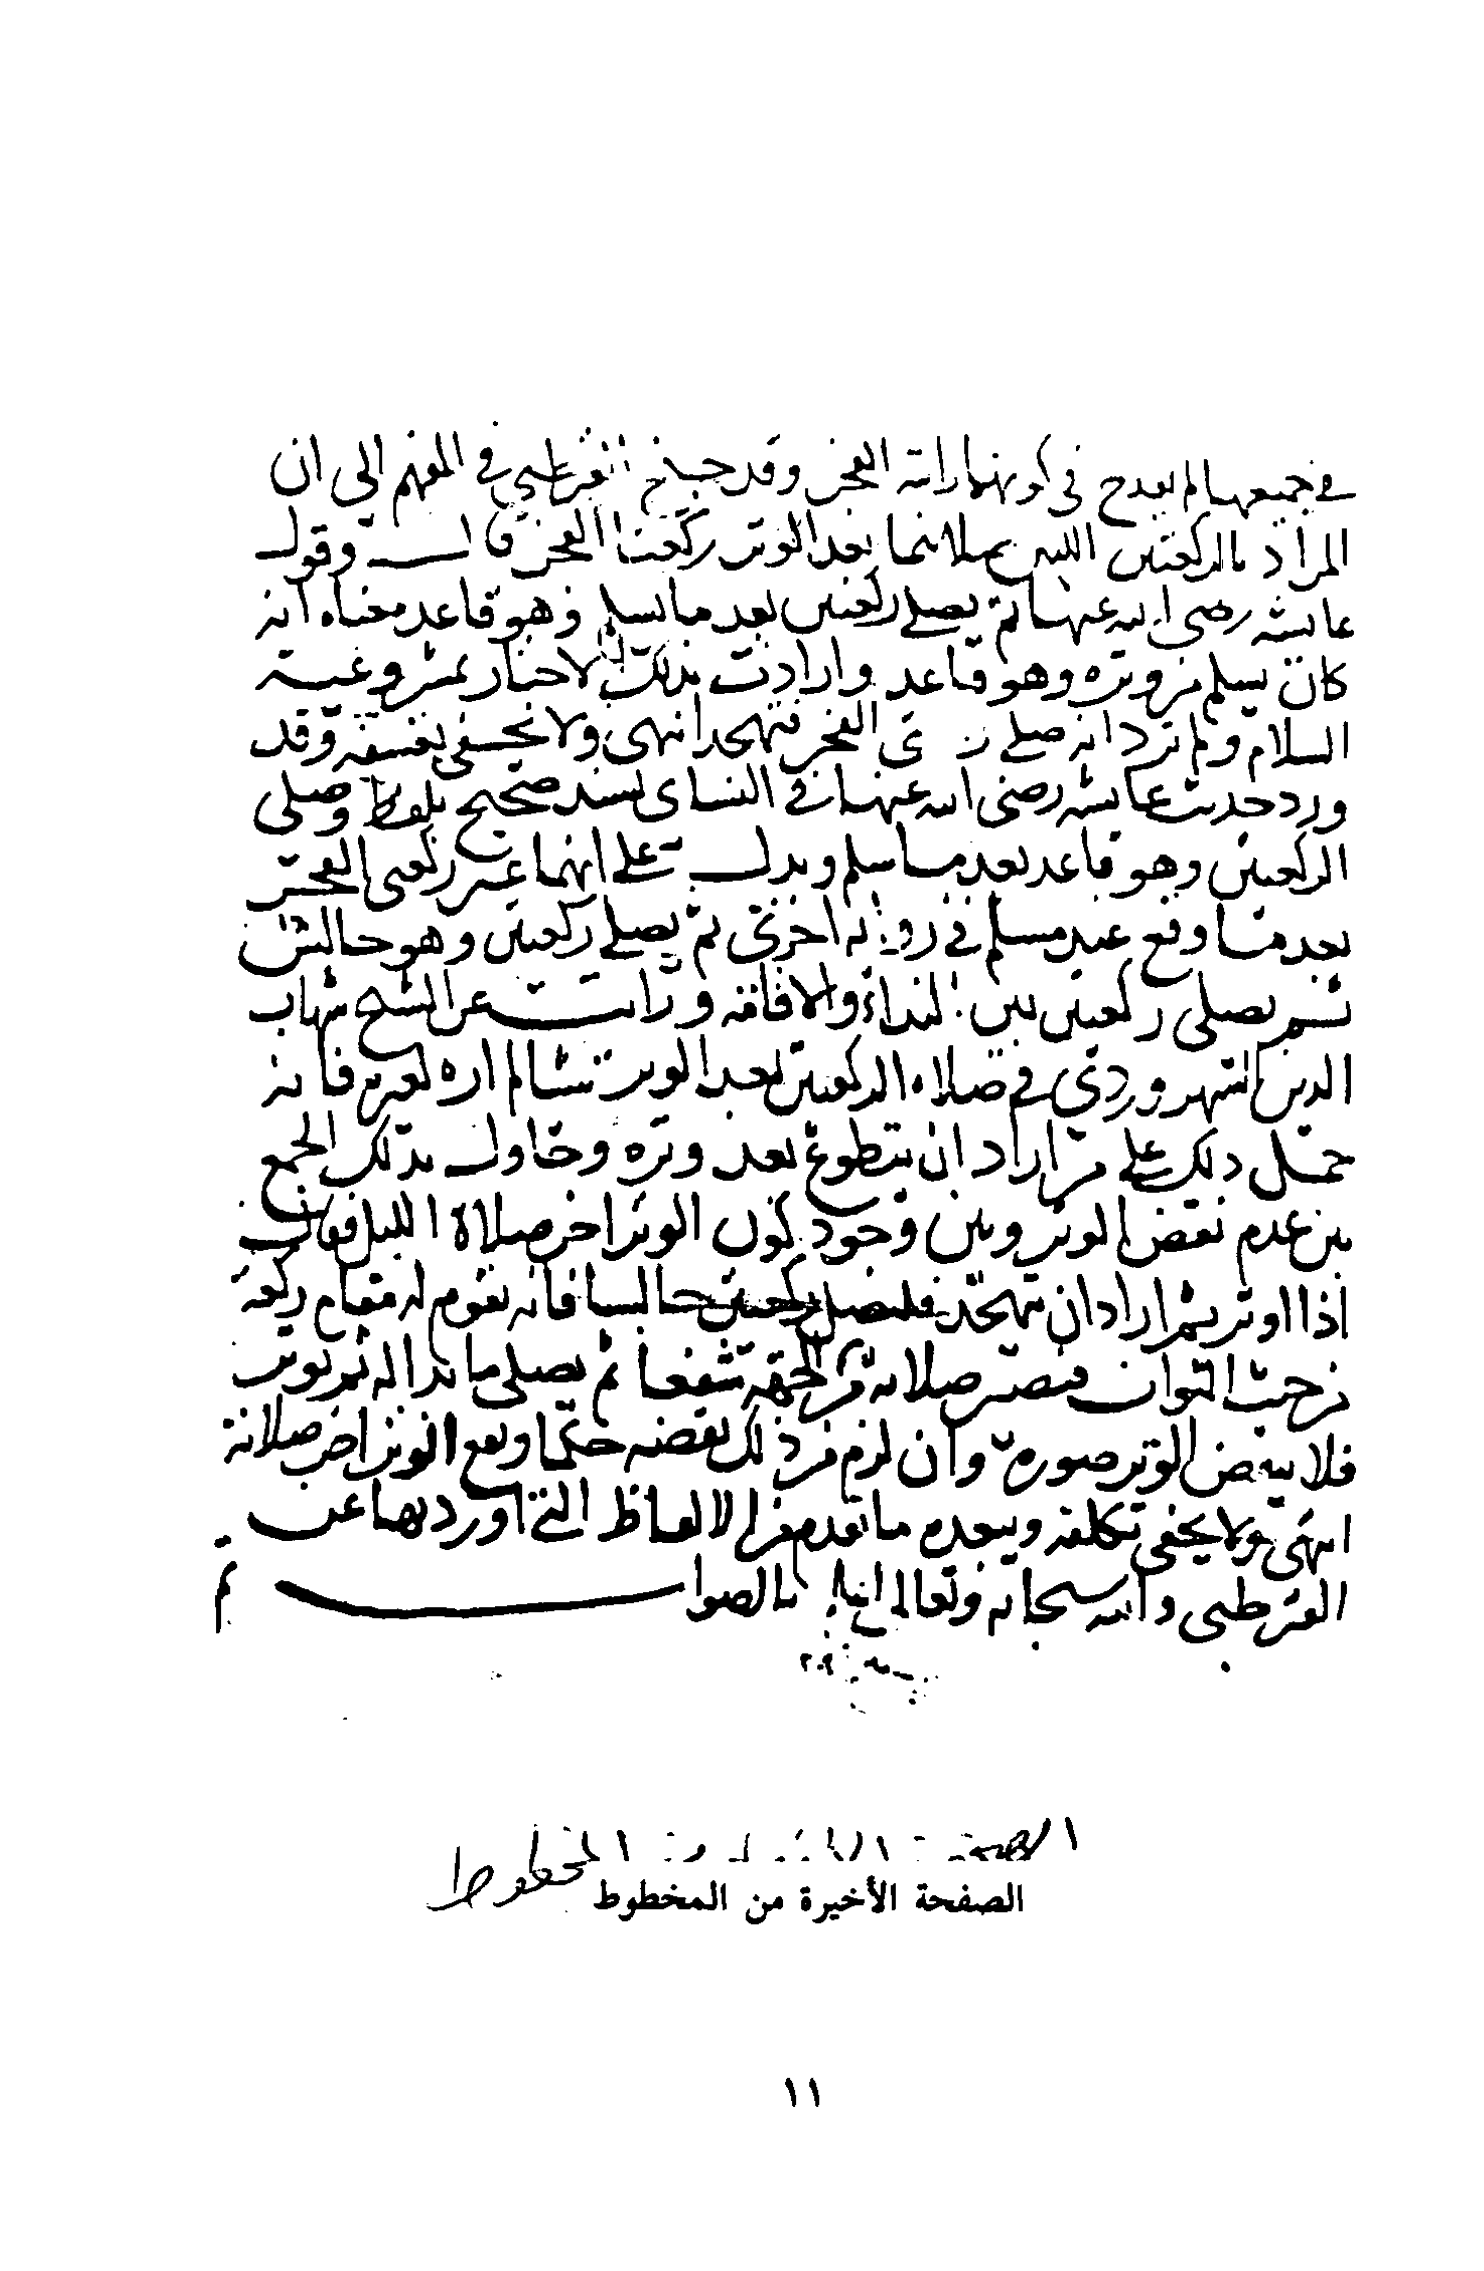 في جميعها لم يقدح في كونهما راتبة الفجر وقد جنح القرطبي في المفهم الى ان
المراد بالركعتين اللتين صلاهما بعد الوتر ركعتا الفجر قال وقول
عايشه رضي الله عنها ثم يصلي ركعتين بعد ما يسلم وهو قاعد معناه انه
كان يسلم من وتره وهو قاعد وارادت بذلك الاخبار بمشروعية
السلام ولم ترد انه صلى ركعتى الفجر فتهجد انتهى ولا يخفى تعسفه وقد
ورد حديث عايشه رضى الله عنها في النساى بسند صحيح بلفظ وصلى
الركعتين وهو قاعد بعد ما سلم ويدل على انهما غير ركعتى الفجر
بعد ما وقع عند مسلم في رواية اخرى ثم يصلي ركعتين وهو جالس
ثم يصلى ركعتين بين النداء والاقامه ورايت عن الشيخ شهاب
الدين السهروردي في صلاه الركعتين بعد الوتر شيا لم اره لغيره فانه
حمل ذلك على من اراد ان يتطوع بعد وتره وحاول بذلك الجمع
بين عدم نقض الوتر وبين وجود كون الوتر اخر صلاة الليل فقال
اذا اوتر ثم اراد ان يتهجد فليصل ركعتين جالسا فانه يقوم له مقام ركعة
من حيث الثواب فتصير صلاته من الجهة شفعا ثم يصلى ما بدا له ثم يوتر
فلا ينقض الوتر صورة وان لزم من ذلك نقضه حكما ويقع الوتر اخر صلاته
انتهى ولا يخفى تكلفه ويبعده ما تقدم من الالفاظ التي اوردها عن
القرطبى والله سبحانه وتعالى اعلم بالصواب تم
الصفحة الأخيرة من المخطوط
الصفحة الأخيرة من المخطوط
١١